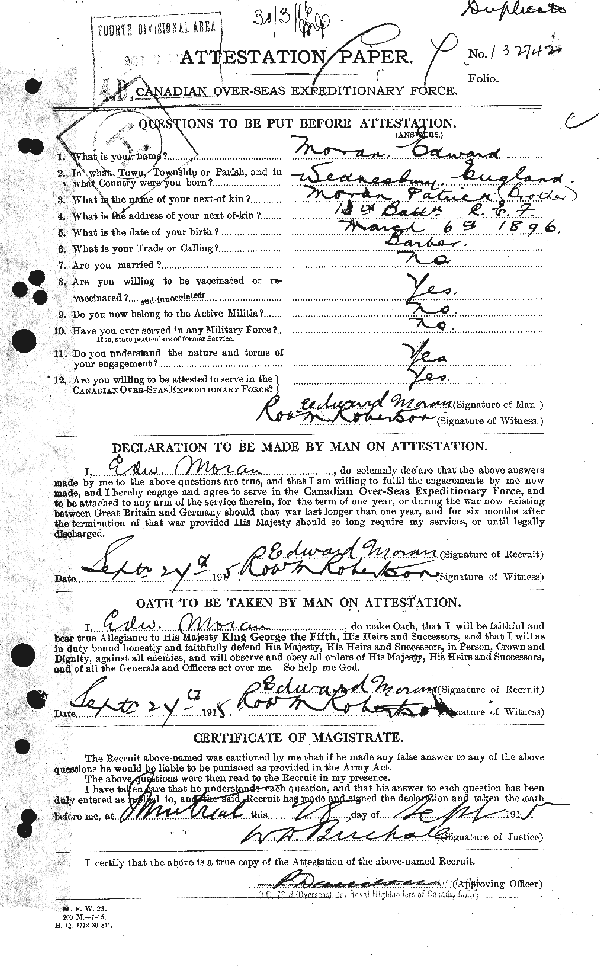 Duplicate
FOURTH DIVISIONAL AREA
ATTESTATION PAPER.
No. 132742
Folio.
CANADIAN OVER-SEAS EXPEDITIONARY FORCE.
QUESTIONS TO BE PUT BEFORE ATTESTATION.
(ANSWERS.)
1. What is your name? Moran Edward
2. In what Town, Township or Parish, and in
what Country were you born? Wednesbury England
3. What is the name of your next-of-kin? Moran Patrick (Brother)
4. What is the address of your next-of-kin? Batt C.E.F.
5. What is the date of your birth? March 6th 1896
6. What is your Trade or Calling? Barber
7. Are you married? No
8. Are you willing to be vaccinated or re-
vaccinated? and inoculated Yes.
9. Do you now belong to the Active Militia? No.
10. Have you ever served in any Military Force? No.
If so, state particulars of former Service.
11. Do you understand the nature and terms of
your engagement? Yes
12. Are you willing to be attested to serve in the
CANADIAN OVER-SEAS EXPEDITIONARY FORCE? Yes.
Edward Moran (Signature of Man.)
Robertson (Signature of Witness.)
DECLARATION TO BE MADE BY MAN ON ATTESTATION.
I, Edw. Moran, do solemnly declare that the above answers
made by me to the above questions are true, and that I am willing to fulfil the engagements by me now
made, and I hereby engage and agree to serve in the Canadian Over-Seas Expeditionary Force, and
to be attached to any arm of the service therein, for the term of one year, or during the war now existing
between Great Britain and Germany should that war last longer than one year, and for six months after
the termination of that war provided His Majesty should so long require my services, or until legally
discharged.
Edward Moran (Signature of Recruit)
Date Sept 24th 1915 Robertson (Signature of Witness)
OATH TO BE TAKEN BY MAN ON ATTESTATION.
I, Edw. Moran, do make Oath, that I will be faithful and
bear true Allegiance to His Majesty King George the Fifth, His Heirs and Successors, and that I will as
in duty bound honestly and faithfully defend His Majesty, His Heirs and Successors, in Person, Crown and
Dignity, against all enemies, and will observe and obey all orders of His Majesty, His Heirs and Successors,
and of all the Generals and Officers set over me. So help me God.
Edward Moran (Signature of Recruit)
Date Sept 24th 1915 Robertson (Signature of Witness)
CERTIFICATE OF MAGISTRATE.
The Recruit above-named was cautioned by me that if he made any false answer to any of the above
questions he would be liable to be punished as provided in the Army Act.
The above questions were then read to the Recruit in my presence.
I have taken care that he understands each question, and that his answer to each question has been
duly entered as replied to, and the said Recruit has made and signed the declaration and taken the oath
before me, at Montreal this 28 day of Sept 1915
(Signature of Justice)
I certify that the above is a true copy of the Attestation of the above-named Recruit.
(Approving Officer)
M. F. W. 23.
200 M.